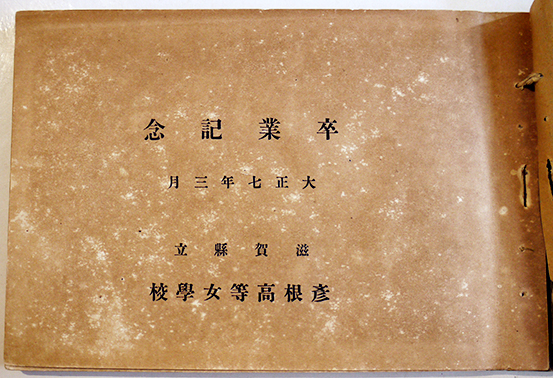 卒業記念
大正七年三月
滋賀縣立
彦根高等女學校